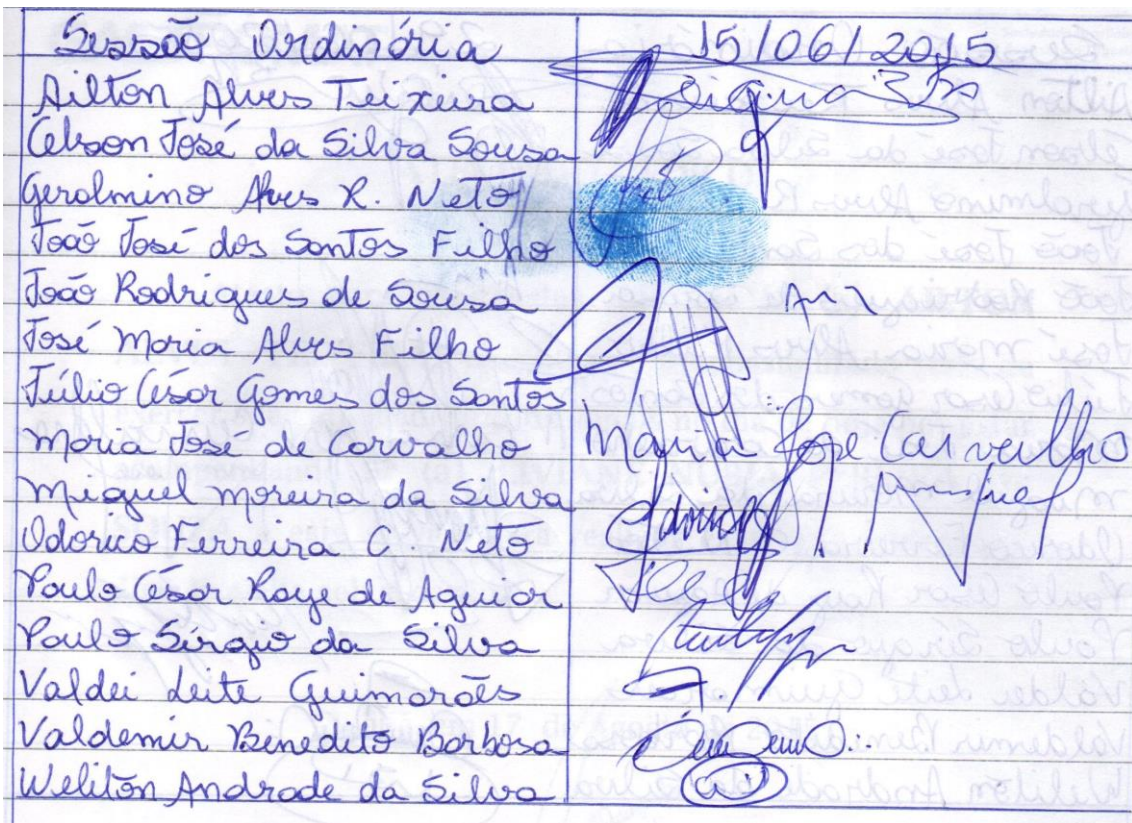 Sessão Ordinária 15/06/2015
Ailton Alves Teixeira
Celson José da Silva Sousa
Gerolmino Alves R. Neto
João José dos Santos Filho
João Rodrigues de Sousa
José Maria Alves Filho
Júlio César Gomes dos Santos
Maria José de Carvalho Maria Jose Carvalho
Miguel Moreira da Silva
Odorico Ferreira C. Neto
Paulo César Raye de Aguiar
Paulo Sérgio da Silva
Valdei Leite Guimarães
Valdemir Benedito Barbosa
Weliton Andrade da Silva